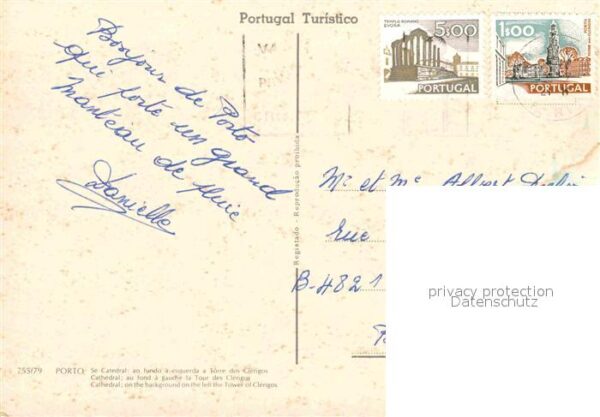 Portugal Turístico
Bonjour de Porto
qui porte un grand
manteau de pluie
Danielle
TEMPLO ROMANO
EVORA
5$00
PORTUGAL
1$00
PORTUGAL
Registado - Reproducção proibida
Mr et Me Albert
Rue
B-4821
privacy protection
Datenschutz
255/79 PORTO: Se Catedral; ao fundo à esquerda a Tôrre dos Clérigos
Cathedral; au fond à gauche la Tour des Clerigos
Cathedral; on the background on the left the Tower of Clerigos